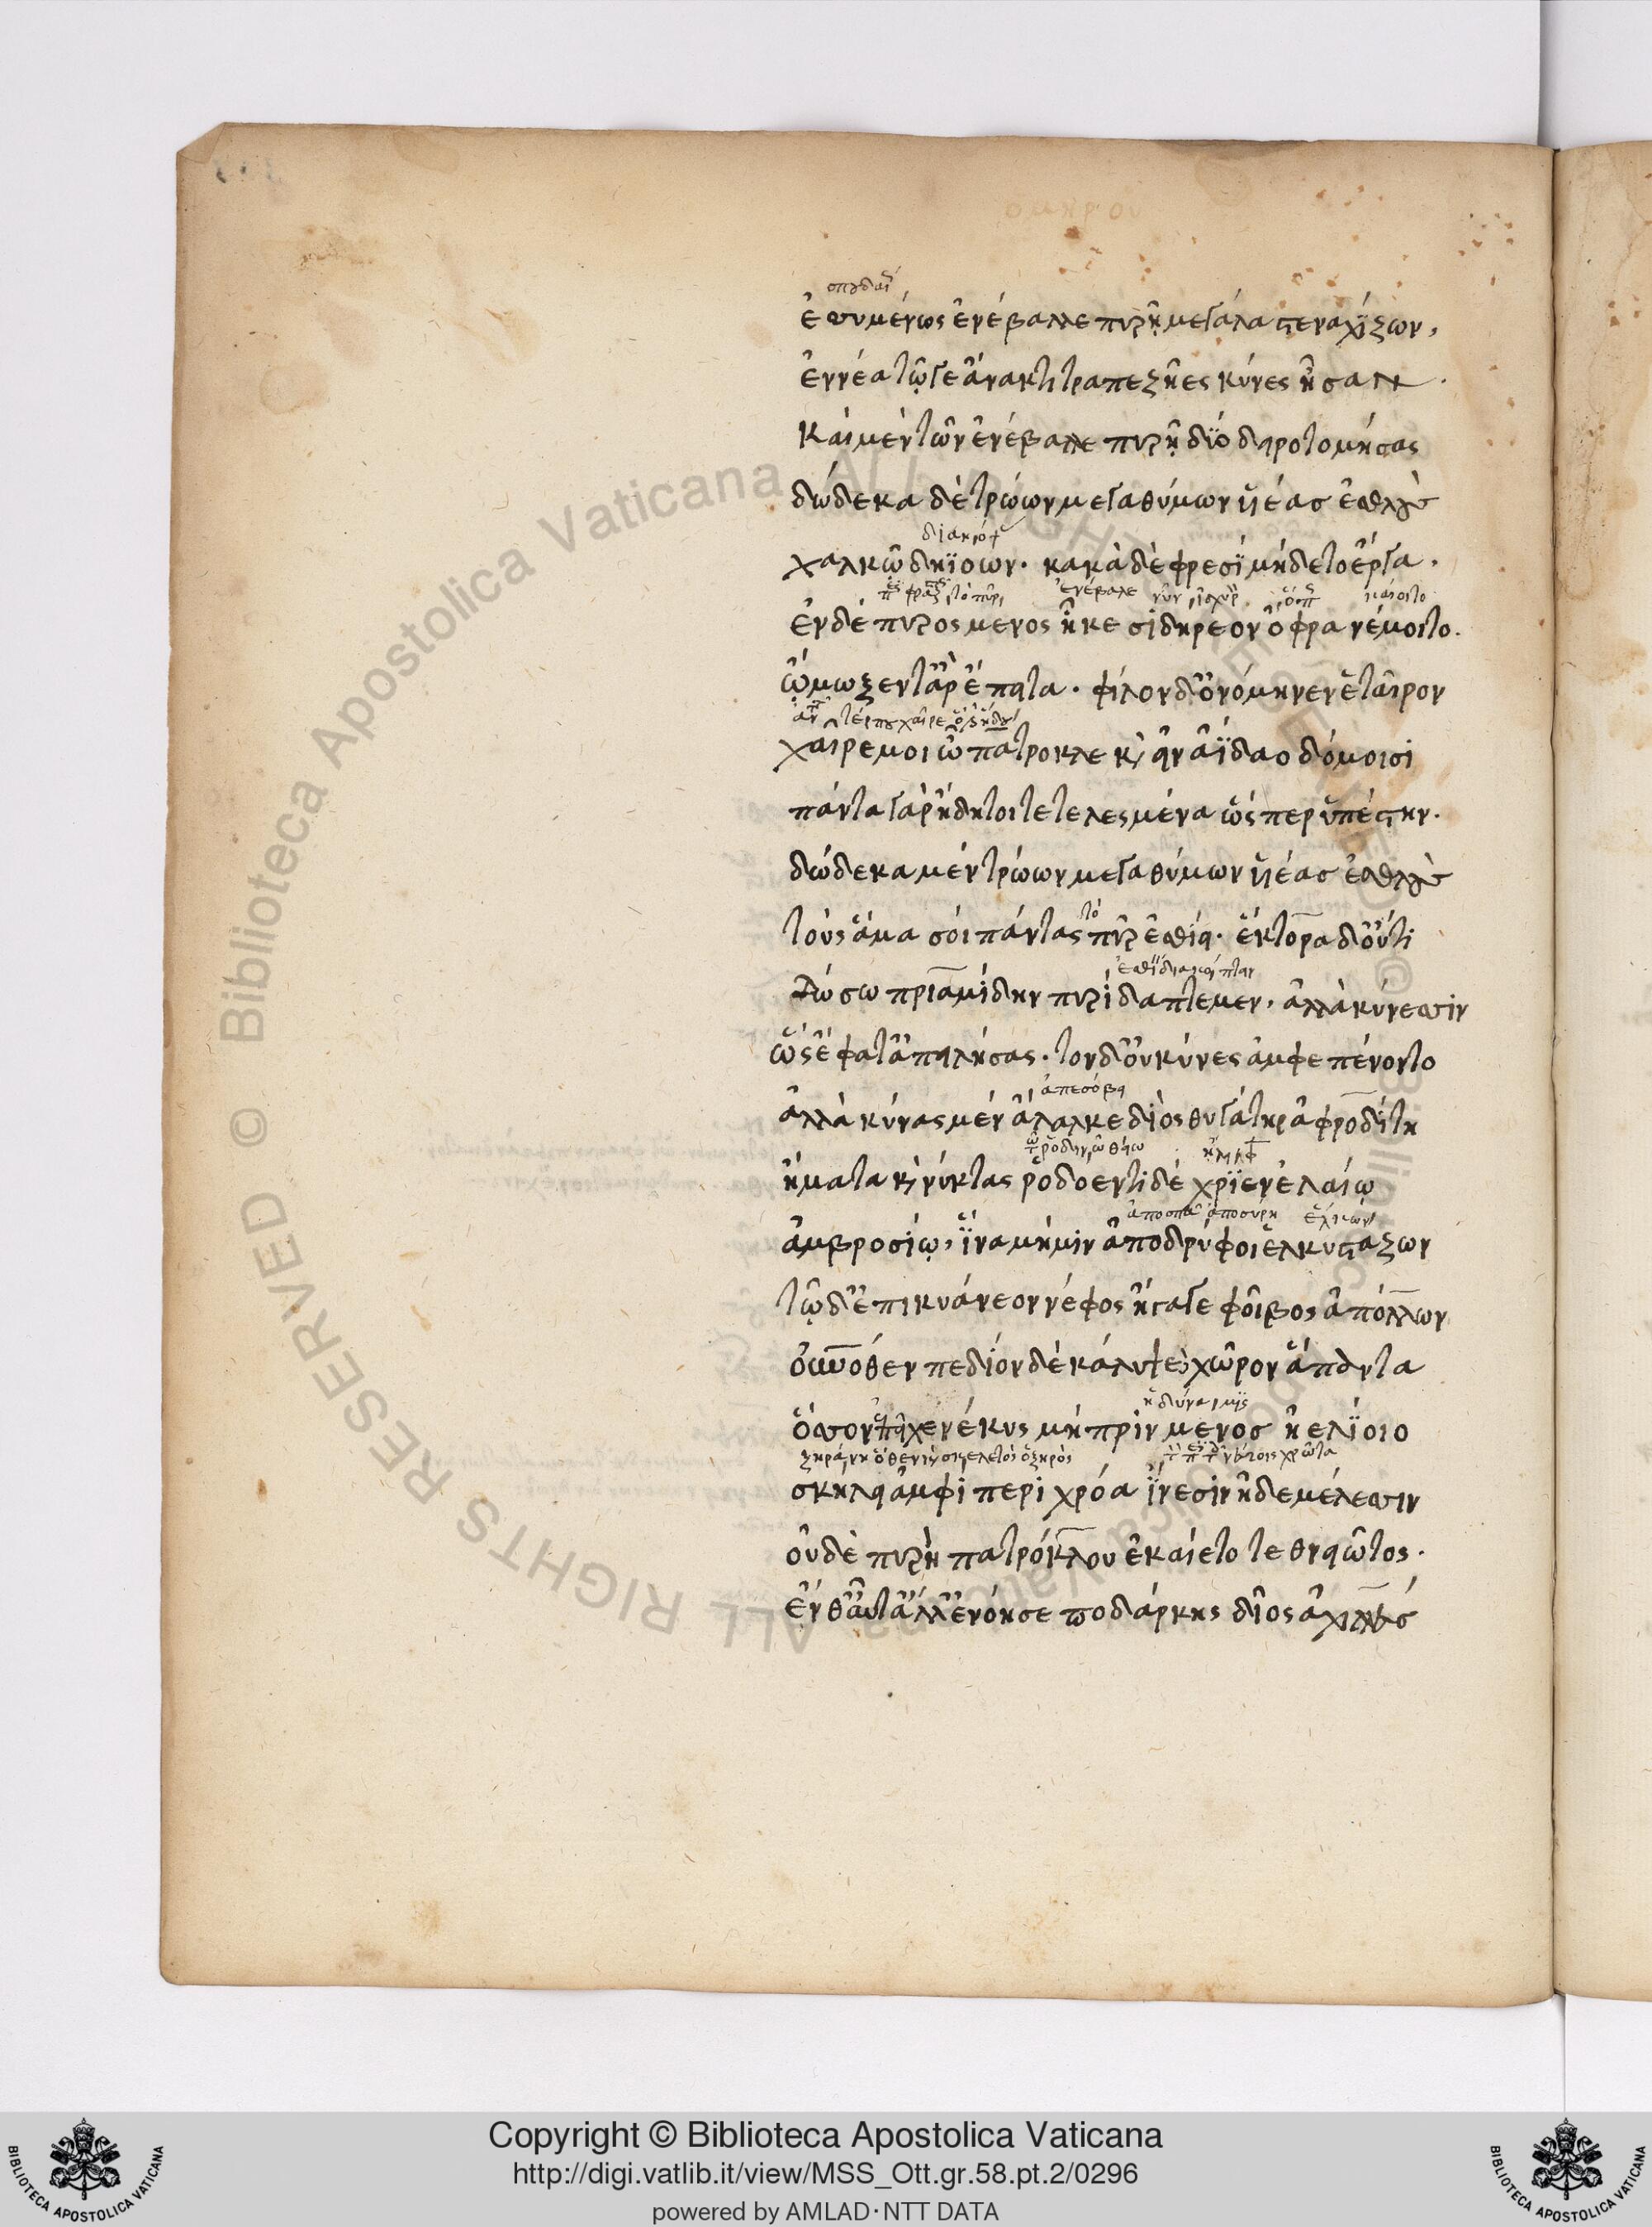 ομηρου
σπουδαί
ἐσσυμένως ἐνέβαλλε πυρῇ μεγάλα στεναχΐζων,
ἐννέα τῷ γε ἄνακτι τραπεζῆες κύνες ἦσαν.
Καὶ μὲν τῶν ἐνέβαλλε πυρῇ δύο δειροτομήσας
δώδεκα δὲ τρώων μεγαθύμων υἱέασ ἐσθλοὺσ
χαλκῶ δηϊοων· κακὰ δὲ φρεσὶ μήδετο ἔργα.
ἐνέβαλε
καίοιτο
ἐν δὲ πυρος μενος ἧκε σιδηρεον ὄφρα νέμοιτο.
ᾤμωξεν τ' ἂρ ἔπειτα· φίλον δ' ὀνόμηνεν ἑταῖρον
χαῖρε μοι ὦ πατροκλε κ(αὶ) εἰν ἀΐδαο δόμοισι
πάντα γὰρ ἤδη τοι τετελεσμένα ὥς περ ὑπέστην.
δώδεκα μὲν τρώων μεγαθύμων υἱέασ ἐσθλοὺσ
τὸ
τοὺς ἅμα σοὶ πάντας πῦρ ἐσθίει· ἕκτορα δ' οὔτι
δώσω πριαμίδην πυρὶ δαπτέμεν, ἀλλὰ κύνεσσιν
ὣς ἔφατ' ἀπειλήσας· τον δ' οὐ κύνες ἀμφεπένοντο
ἀπεσόβει
ἀλλὰ κύνας μὲν ἄλαλκε διὸς θυγάτηρ ἀφροδίτη
ἤματα κ(αὶ) νύκτας ῥοδοεντι δὲ χρῖεν ἐλαίω
ἀποσπᾶ ἀποσύρη ἑλκών
ἀμβροσίῳ, ἵνα μή μιν ἀποδρύφοι ἑλκυσταζων
τῷ δ' ἐπι κυάνεον νέφος ἤγαγε φοῖβος ἀπόλλων
οὐρανόθεν πεδίον δὲ κάλυψε χῶρον ἅπαντα
ἡ δύναμις
ὅσσον ἐπεῖχε νέκυς μὴ πρὶν μενοσ ἠελίοιο
σκήλει ἀμφὶ περὶ χρόα ἴνεσιν ἠδε μέλεσσιν
οὐδὲ πυρὴ πατρόκλου ἐκαίετο τεθνειῶτος.
ἔνθ' αὖτ' ἄλλ' ἐνόησε ποδάρκης δῖος ἀχιλλεύσ
© Biblioteca Apostolica Vaticana ALL RIGHTS RESERVED
Copyright © Biblioteca Apostolica Vaticana
http://digi.vatlib.it/view/MSS_Ott.gr.58.pt.2/0296
powered by AMLAD·NTT DATA
BIBLIOTECA APOSTOLICA VATICANA
BIBLIOTECA APOSTOLICA VATICANA